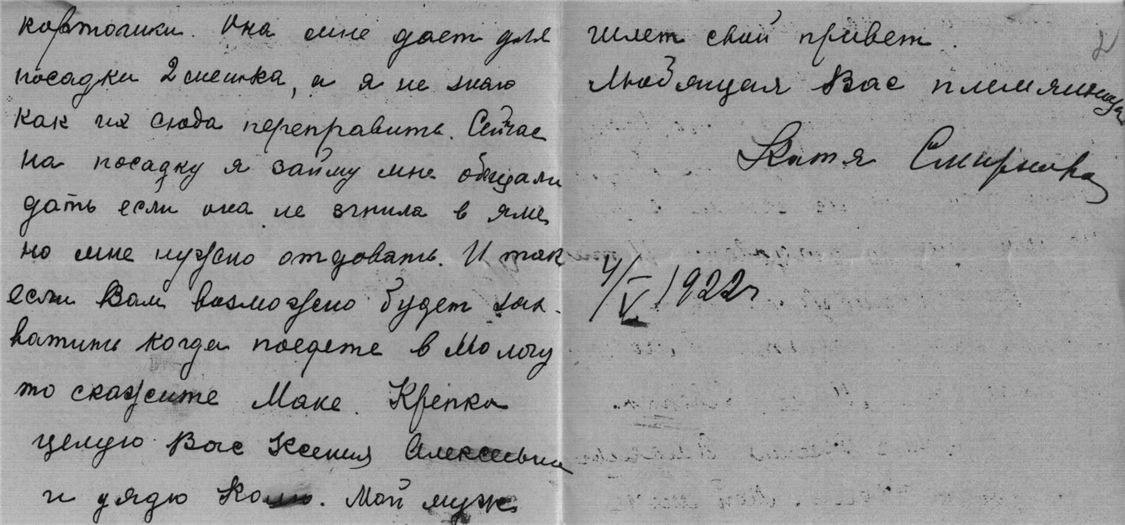 картошки. Она мне дает для
посадки 2 мешка, а я не знаю
как их сюда переправить. Сейчас
на посадку я займу мне обещали
дать если она не згнила в яме,
но мне нужно отдовать. И так
если Вам возможно будет зах-
ватить когда поедете в Мологу
то скажите Маке. Крепко
целую Вас Ксения Алексевна
и дядю Колю. Мой муж
шлет свой привет.
Любящая Вас племянница
Катя Смирнова
4/V 1922г
2